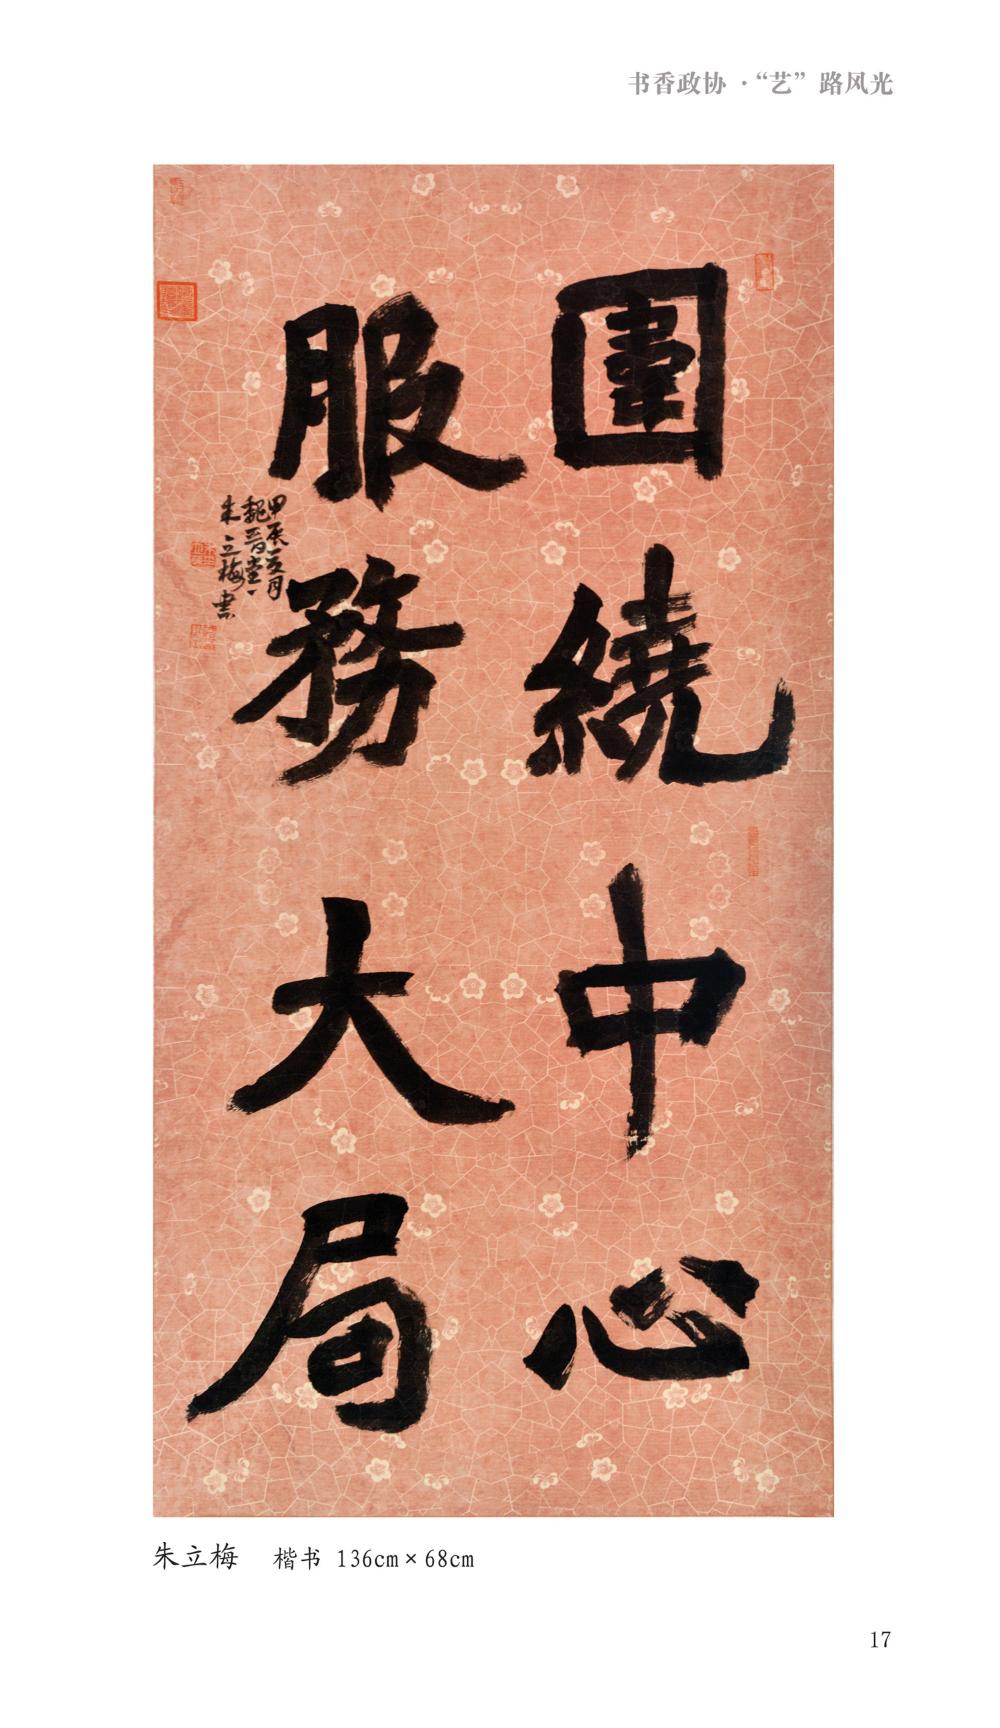 书香政协 ·“艺”路风光
圍繞中心
服務大局
甲辰夏月
魏晋堂
朱立梅書
朱立梅 楷书 136cm×68cm
17